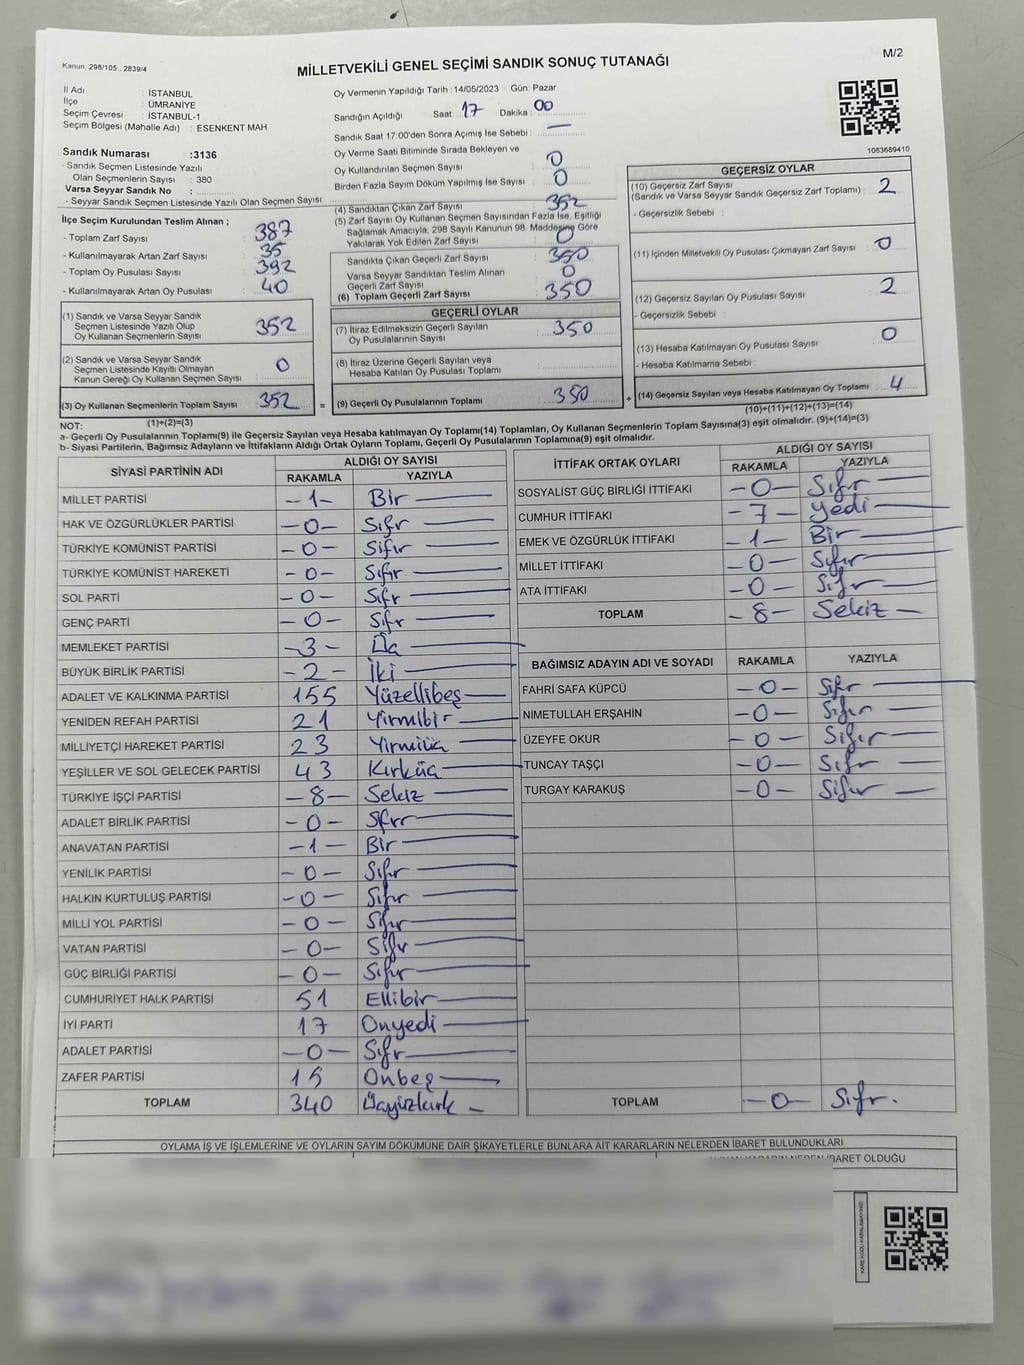 Kanun: 298/105 , 2839/4
M/2
MİLLETVEKİLİ GENEL SEÇİMİ SANDIK SONUÇ TUTANAĞI
İl Adı : İSTANBUL
İlçe : ÜMRANİYE
Seçim Çevresi : İSTANBUL-1
Seçim Bölgesi (Mahalle Adı) : ESENKENT MAH.
Sandık Numarası :3136
- Sandık Seçmen Listesinde Yazılı
Olan Seçmenlerin Sayısı : 380
Varsa Seyyar Sandık No :
- Seyyar Sandık Seçmen Listesinde Yazılı Olan Seçmen Sayısı :
İlçe Seçim Kurulundan Teslim Alınan ;
- Toplam Zarf Sayısı : 387
- Kullanılmayarak Artan Zarf Sayısı : 35
- Toplam Oy Pusulası Sayısı : 392
- Kullanılmayarak Artan Oy Pusulası : 40
(1) Sandık ve Varsa Seyyar Sandık
Seçmen Listesinde Yazılı Olup
Oy Kullanan Seçmenlerin Sayısı : 352
(2) Sandık ve Varsa Seyyar Sandık
Seçmen Listesinde Kayıtlı Olmayan
Kanun Gereği Oy Kullanan Seçmen Sayısı : 0
(3) Oy Kullanan Seçmenlerin Toplam Sayısı : 352
(1)+(2)=(3)
Oy Vermenin Yapıldığı Tarih : 14/05/2023 Gün: Pazar
Sandığın Açıldığı Saat: 17 Dakika : 00
Sandık Saat 17:00'den Sonra Açımış İse Sebebi : —
Oy Verme Saati Bitiminde Sırada Bekleyen ve
Oy Kullandırılan Seçmen Sayısı : 0
Birden Fazla Sayım Döküm Yapılmış İse Sayısı : 0
(4) Sandıktan Çıkan Zarf Sayısı : 352
(5) Zarf Sayısı Oy Kullanan Seçmen Sayısından Fazla İse, Eşitliği
Sağlamak Amacıyla, 298 Sayılı Kanunun 98. Maddesine Göre
Yakılarak Yok Edilen Zarf Sayısı : 0
Sandıkta Çıkan Geçerli Zarf Sayısı : 350
Varsa Seyyar Sandıktan Teslim Alınan
Geçerli Zarf Sayısı : 0
(6) Toplam Geçerli Zarf Sayısı : 350
GEÇERLİ OYLAR
(7) İtiraz Edilmeksizin Geçerli Sayılan
Oy Pusulalarının Sayısı : 350
(8) İtiraz Üzerine Geçerli Sayılan veya
Hesaba Katılan Oy Pusulası Toplamı :
= (9) Geçerli Oy Pusulalarının Toplamı : 350
1083689410
GEÇERSİZ OYLAR
(10) Geçersiz Zarf Sayısı
(Sandık ve Varsa Seyyar Sandık Geçersiz Zarf Toplamı) : 2
- Geçersizlik Sebebi :
(11) İçinden Milletvekili Oy Pusulası Çıkmayan Zarf Sayısı : 0
(12) Geçersiz Sayılan Oy Pusulası Sayısı : 2
- Geçersizlik Sebebi :
(13) Hesaba Katılmayan Oy Pusulası Sayısı : 0
- Hesaba Katılmama Sebebi :
+ (14) Geçersiz Sayılan veya Hesaba Katılmayan Oy Toplamı : 4
(10)+(11)+(12)+(13)=(14)
NOT:
a- Geçerli Oy Pusulalarının Toplamı(9) ile Geçersiz Sayılan veya Hesaba katılmayan Oy Toplamı(14) Toplamları, Oy Kullanan Seçmenlerin Toplam Sayısına(3) eşit olmalıdır. (9)+(14)=(3)
b- Siyasi Partilerin, Bağımsız Adayların ve İttifakların Aldığı Ortak Oyların Toplamı, Geçerli Oy Pusulalarının Toplamına(9) eşit olmalıdır.
SİYASİ PARTİNİN ADI ALDIĞI OY SAYISI
RAKAMLA YAZIYLA
MİLLET PARTİSİ -1- Bir
HAK VE ÖZGÜRLÜKLER PARTİSİ -0- Sıfır
TÜRKİYE KOMÜNİST PARTİSİ -0- Sıfır
TÜRKİYE KOMÜNİST HAREKETİ -0- Sıfır
SOL PARTİ -0- Sıfır
GENÇ PARTİ -0- Sıfır
MEMLEKET PARTİSİ -3- Üç
BÜYÜK BİRLİK PARTİSİ -2- İki
ADALET VE KALKINMA PARTİSİ 155 Yüzellibeş
YENİDEN REFAH PARTİSİ 21 Yirmibir
MİLLİYETÇİ HAREKET PARTİSİ 23 Yirmiüç
YEŞİLLER VE SOL GELECEK PARTİSİ 43 Kırküç
TÜRKİYE İŞÇİ PARTİSİ -8- Sekiz
ADALET BİRLİK PARTİSİ -0- Sıfır
ANAVATAN PARTİSİ -1- Bir
YENİLİK PARTİSİ -0- Sıfır
HALKIN KURTULUŞ PARTİSİ -0- Sıfır
MİLLİ YOL PARTİSİ -0- Sıfır
VATAN PARTİSİ -0- Sıfır
GÜÇ BİRLİĞİ PARTİSİ -0- Sıfır
CUMHURİYET HALK PARTİSİ 51 Ellibir
İYİ PARTİ 17 Onyedi
ADALET PARTİSİ -0- Sıfır
ZAFER PARTİSİ 15 Onbeş
TOPLAM 340 Üçyüzkırk
İTTİFAK ORTAK OYLARI ALDIĞI OY SAYISI
RAKAMLA YAZIYLA
SOSYALİST GÜÇ BİRLİĞİ İTTİFAKI -0- Sıfır
CUMHUR İTTİFAKI -7- Yedi
EMEK VE ÖZGÜRLÜK İTTİFAKI -1- Bir
MİLLET İTTİFAKI -0- Sıfır
ATA İTTİFAKI -0- Sıfır
TOPLAM -8- Sekiz
BAĞIMSIZ ADAYIN ADI VE SOYADI RAKAMLA YAZIYLA
FAHRİ SAFA KÜPCÜ -0- Sıfır
NİMETULLAH ERŞAHİN -0- Sıfır
ÜZEYFE OKUR -0- Sıfır
TUNCAY TAŞÇI -0- Sıfır
TURGAY KARAKUŞ -0- Sıfır
TOPLAM -0- Sıfır.
OYLAMA İŞ VE İŞLEMLERİNE VE OYLARIN SAYIM DÖKÜMÜNE DAİR ŞİKAYETLERLE BUNLARA AİT KARARLARIN NELERDEN İBARET BULUNDUKLARI
KARARIN NEDEN İBARET OLDUĞU